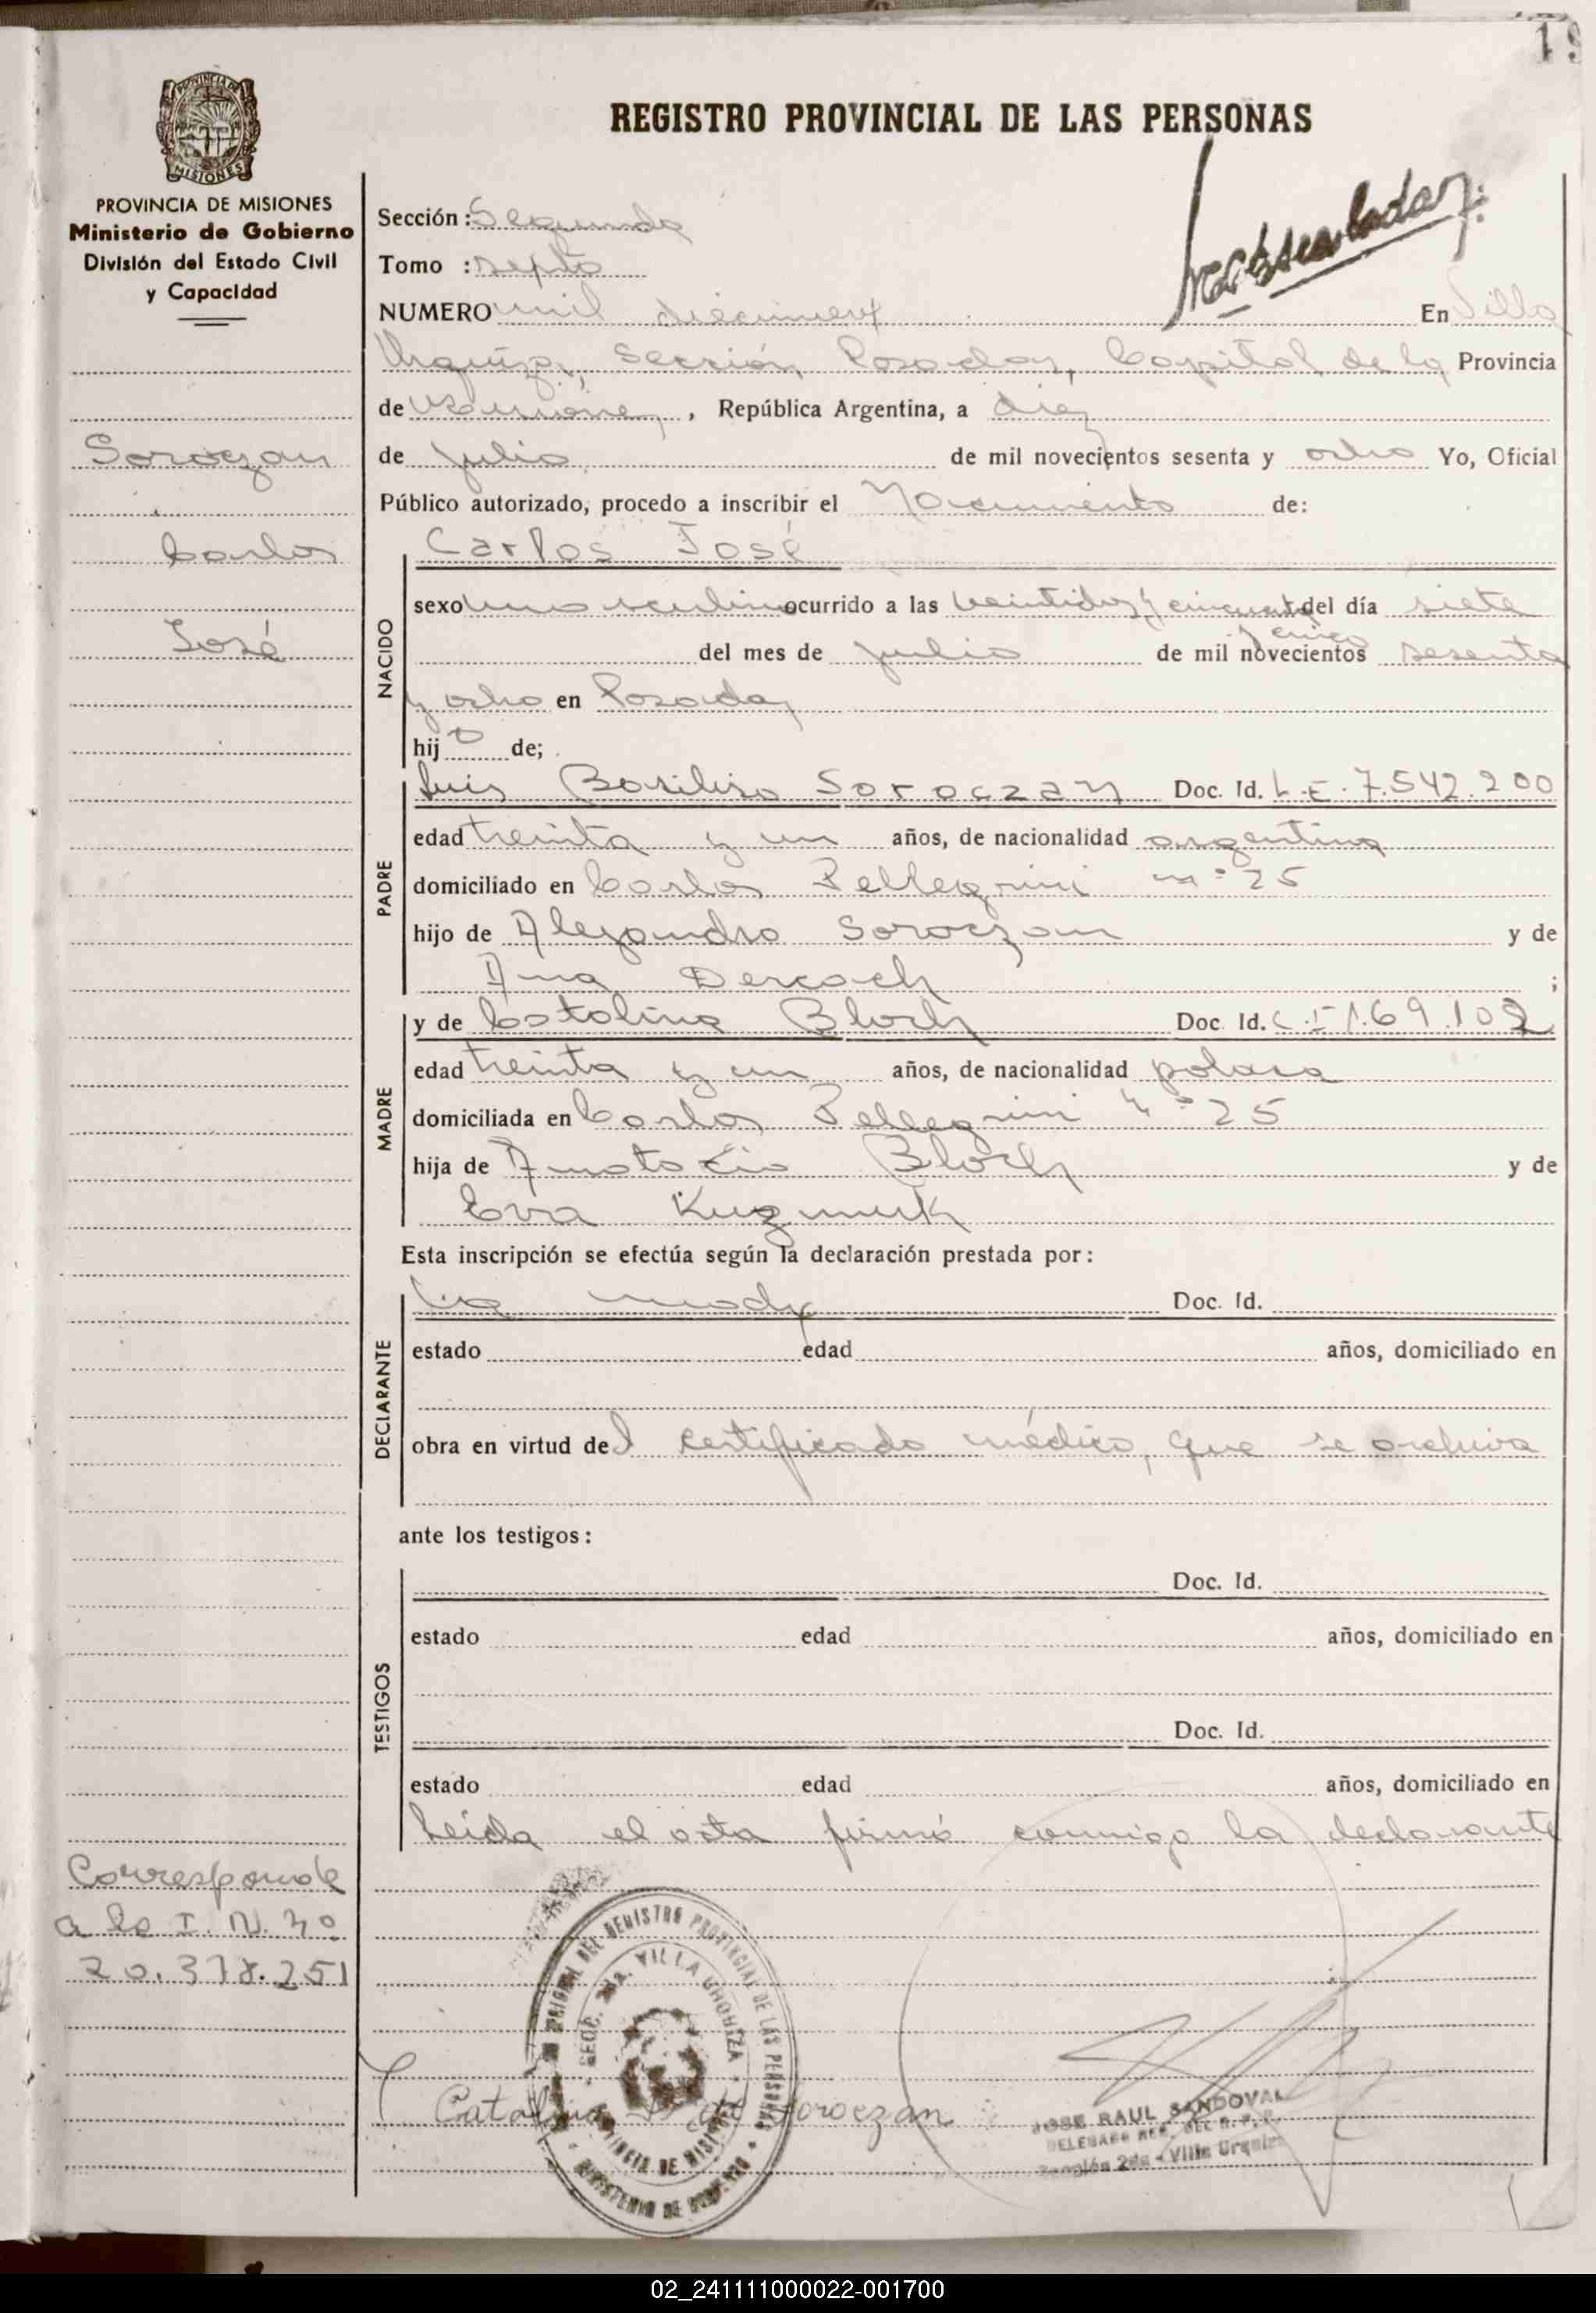 19
PROVINCIA DE
MISIONES
REGISTRO PROVINCIAL DE LAS PERSONAS
PROVINCIA DE MISIONES
Ministerio de Gobierno
División del Estado Civil
y Capacidad
Sección: Segunda
Tomo : septo
NUMERO mil diecinueve En Villa
Urquiza, Sección Posadas, Capital de la Provincia
de Misiones, República Argentina, a diez
de julio de mil novecientos sesenta y ocho Yo, Oficial
Público autorizado, procedo a inscribir el Nacimiento de:
Soroczan
Carlos
José
NACIDO
Carlos José
sexo masculino ocurrido a las veintidos y cincuenta del día siete
y cinco
del mes de julio de mil novecientos sesenta
y ocho en Posadas
hijo de;
PADRE
Luis Basilio Soroczan Doc. Id. L.E. 7.542.200
edad treinta y un años, de nacionalidad argentina
domiciliado en Carlos Pellegrini nº 25
hijo de Alejandro Soroczan y de
Ana Dercach ;
MADRE
y de Catalina Bloch Doc. Id. C.I 169.102
edad treinta y un años, de nacionalidad polaca
domiciliada en Carlos Pellegrini nº 25
hija de Anatolio Bloch y de
Eva Kuzmuk
Esta inscripción se efectúa según la declaración prestada por:
DECLARANTE
La madre Doc. Id.
estado edad años, domiciliado en
obra en virtud del certificado médico, que se archiva
ante los testigos:
TESTIGOS
Doc. Id.
estado edad años, domiciliado en
Doc. Id.
estado edad años, domiciliado en
Leída el acta firmó conmigo la declarante
Corresponde
a la I. N. nº
20.378.251
DEL REGISTRO PROVINCIAL DE LAS PERSONAS
SECC. 2da. VILLA URQUIZA
PROVINCIA DE MISIONES
MINISTERIO DE GOBIERNO
Catalina B de Soroczan
JOSE RAUL SANDOVAL
DELEGADO REG. DEL R. P. P.
Sección 2da - Villa Urquiza
02_241111000022-001700